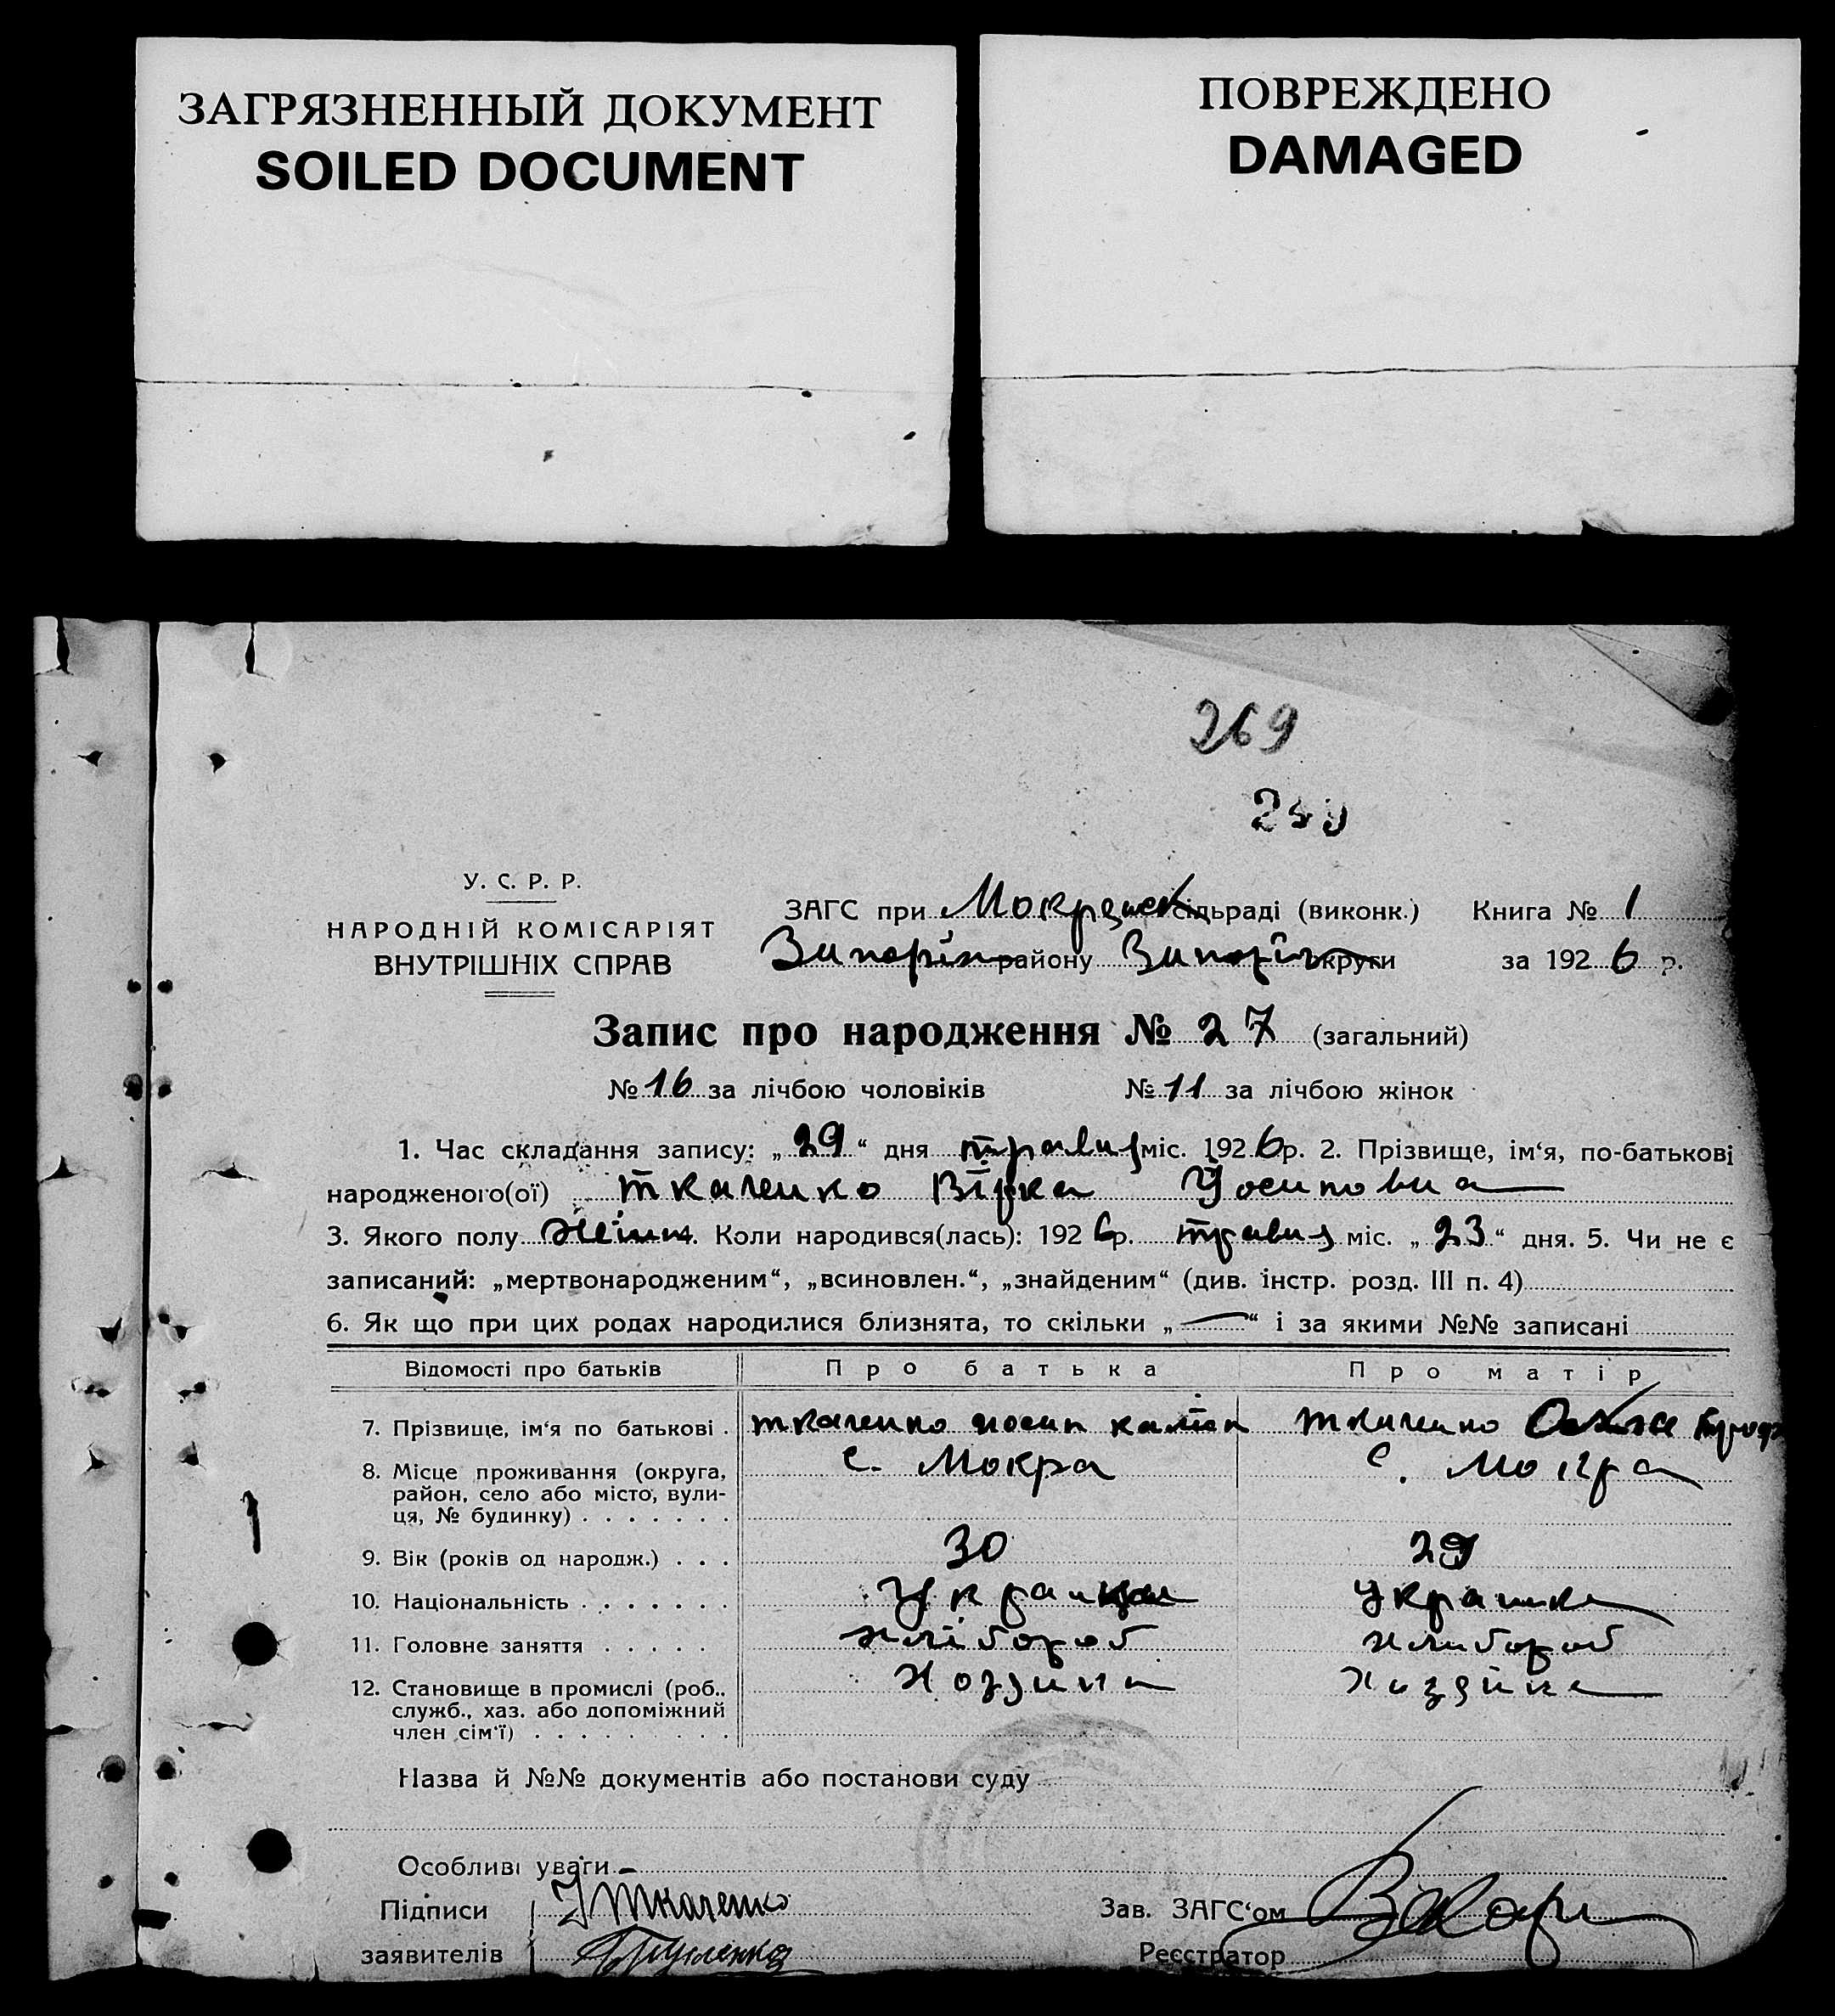 ЗАГРЯЗНЕННЫЙ ДОКУМЕНТ
SOILED DOCUMENT
ПОВРЕЖДЕНО
DAMAGED
269
У. С. Р. Р.
НАРОДНІЙ КОМІСАРІЯТ
ВНУТРІШНІХ СПРАВ
ЗАГС при Мокрянск сільраді (виконк.) Книга № 1
Запоріз району Запоріз округи за 1926 р.
Запис про народження № 27 (загальний)
№ 16 за лічбою чоловіків № 11 за лічбою жінок
1. Час складання запису: „29“ дня травня міс. 1926р. 2. Прізвище, ім‘я, по-батькові
народженого(ої) Ткаченко Вірка Йосиповна
3. Якого полу жіни 4. Коли народився(лась): 1926р. травня міс. „23“ дня. 5. Чи не є
записаний: „мертвонародженим“, „всиновлен.“, „знайденим“ (див. інстр. розд. III п. 4)
6. Як що при цих родах народилися близнята, то скільки „—“ і за якими №№ записані
Відомості про батьків Про батька Про матір
7. Прізвище, ім‘я по батькові . Ткаченко Йосип Ткаченко
8. Місце проживання (округа, с. Мокра с. Мокра
район, село або місто, вули-
ця, № будинку) . . . . . . .
9. Вік (років од народж.) . . . 30 29
10. Національність . . . . . . . Українець Українка
11. Головне заняття . . . . . хлібороб хлибороб
12. Становище в промислі (роб., Хозяина Хозяйка
служб., хаз. або допоміжний
член сім‘ї) . . . . . . . . .
Назва й №№ документів або постанови суду
Особливі уваги —
Підписи Й Ткаченко Зав. ЗАГС‘ом
заявителів Реєстратор